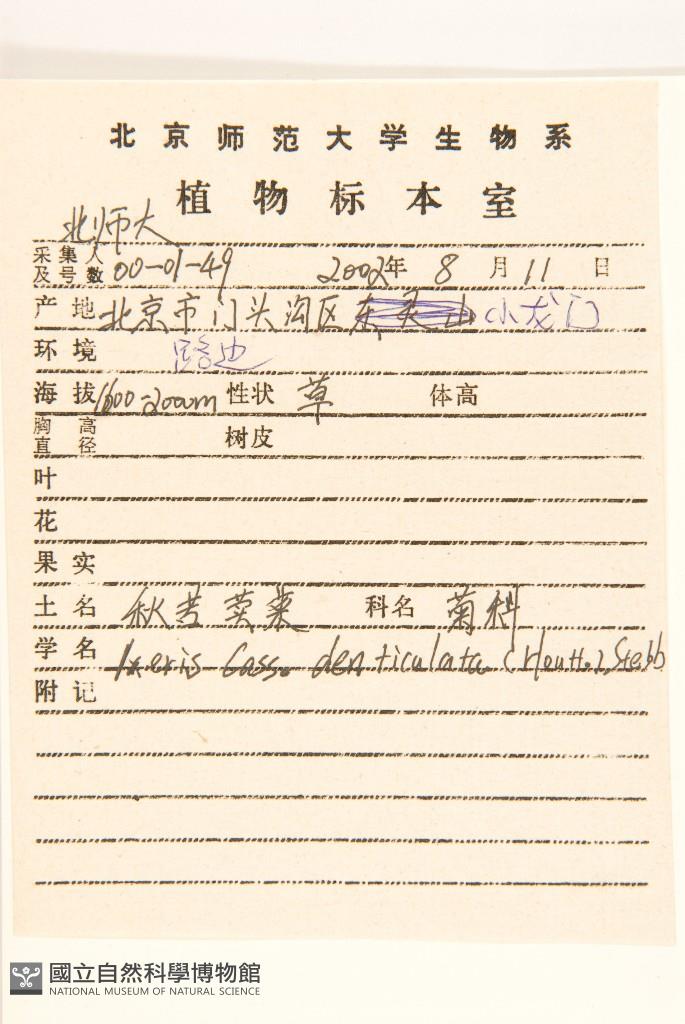 北京师范大学生物系
植物标本室
北师大
采集人及号数 00-01-49 2002年 8 月 11 日
产地 北京市门头沟区东灵山(小龙门)
环境 路边
海拔 1600-2000m 性状 草 体高
胸高直径 树皮
叶
花
果实
土名 秋苦荬菜 科名 菊科
学名 Ixeris Cass. denticulata (Houtt.) Stebb
附记
國立自然科學博物館
NATIONAL MUSEUM OF NATURAL SCIENCE